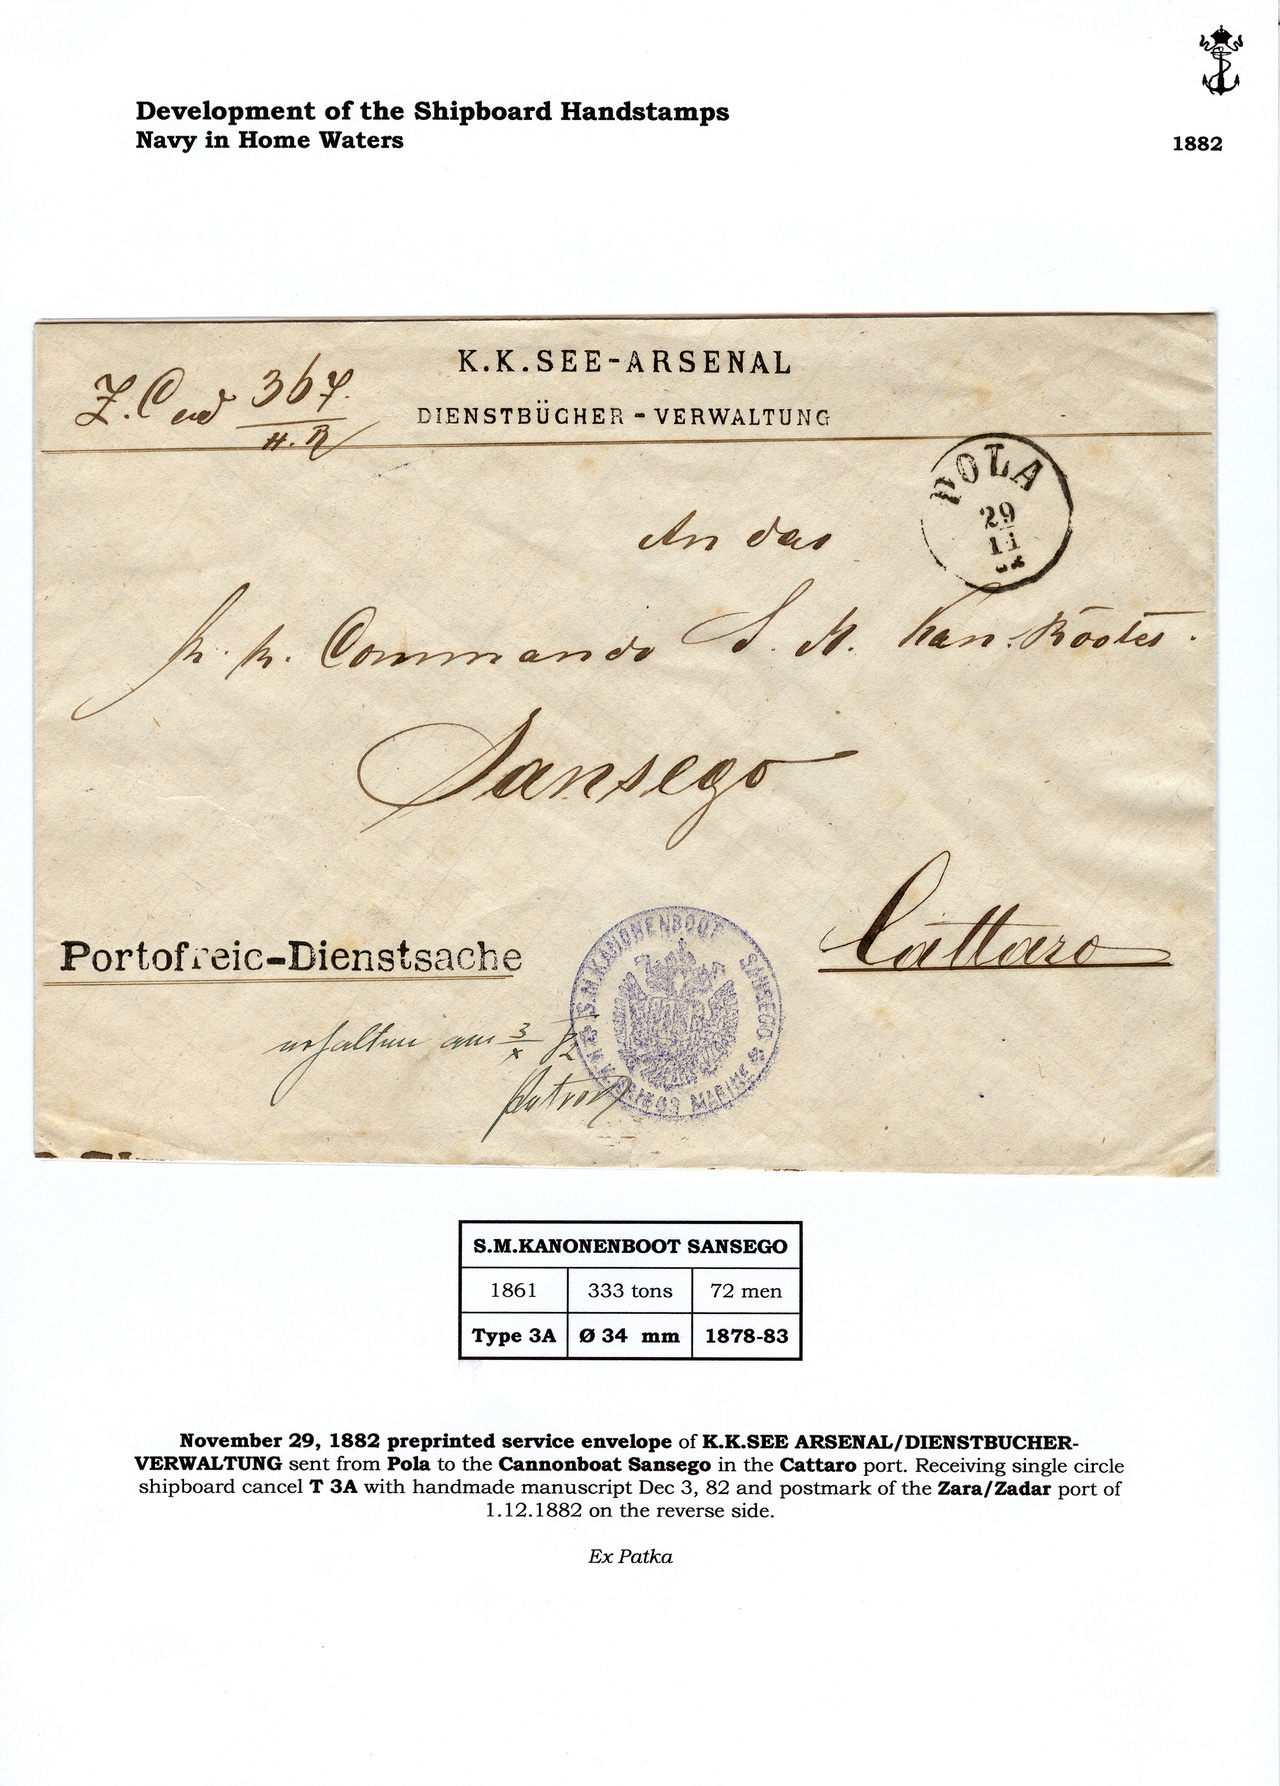 Development of the Shipboard Handstamps
Navy in Home Waters
1882
K.K.SEE-ARSENAL
DIENSTBÜCHER-VERWALTUNG
367.
H.R
POLA
29
11
An das
K. K. Commando S. M. Kan. Bootes.
Sansego
Cattaro
Portofreie-Dienstsache
S.M.KANONENBOOT SANSEGO
K.K.KRIEGS MARINE
erhalten am 3/x 82
S.M.KANONENBOOT SANSEGO
1861 333 tons 72 men
Type 3A Ø 34 mm 1878-83
November 29, 1882 preprinted service envelope of K.K.SEE ARSENAL/DIENSTBUCHER-
VERWALTUNG sent from Pola to the Cannonboat Sansego in the Cattaro port. Receiving single circle
shipboard cancel T 3A with handmade manuscript Dec 3, 82 and postmark of the Zara/Zadar port of
1.12.1882 on the reverse side.
Ex Patka